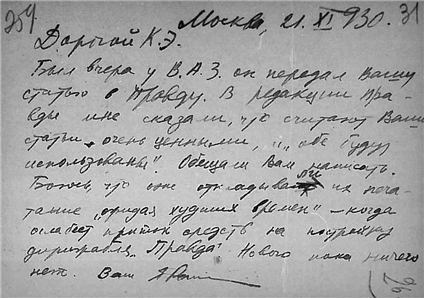 254
Москва, 21.XI 930. 31
Дорогой К.Э.
Был вчера у В.А.З. он передал Вашу
статью в Правду. В редакции Пра-
вды мне сказали, что считают Ваши
статьи очень ценными, и „обе будут
использованы“. Обещали Вам написать.
Боюсь, что они откладывают их печа-
тание „ожидая худших времен“ – когда
ослабнет приток средств на постройку
дирижабля „Правда“. Нового пока ничего
нет. Ваш